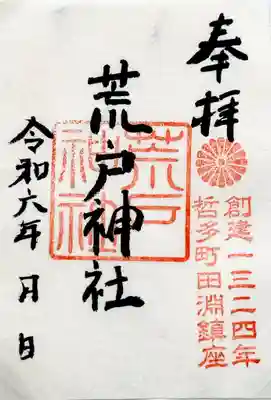 奉拝
創建一三二四年
哲多町田淵鎮座
荒戸神社
荒戸神社
令和六年 月 日